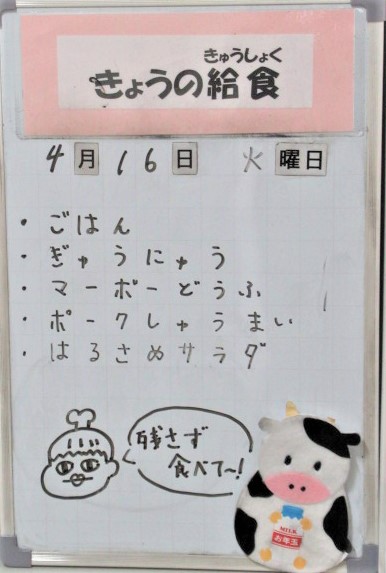 きゅうしょく
きょうの給食
4月16日 火曜日
・ごはん
・ぎゅうにゅう
・マーボーどうふ
・ポークしゅうまい
・はるさめサラダ
残さず
食べて〜!
MILK
お年玉